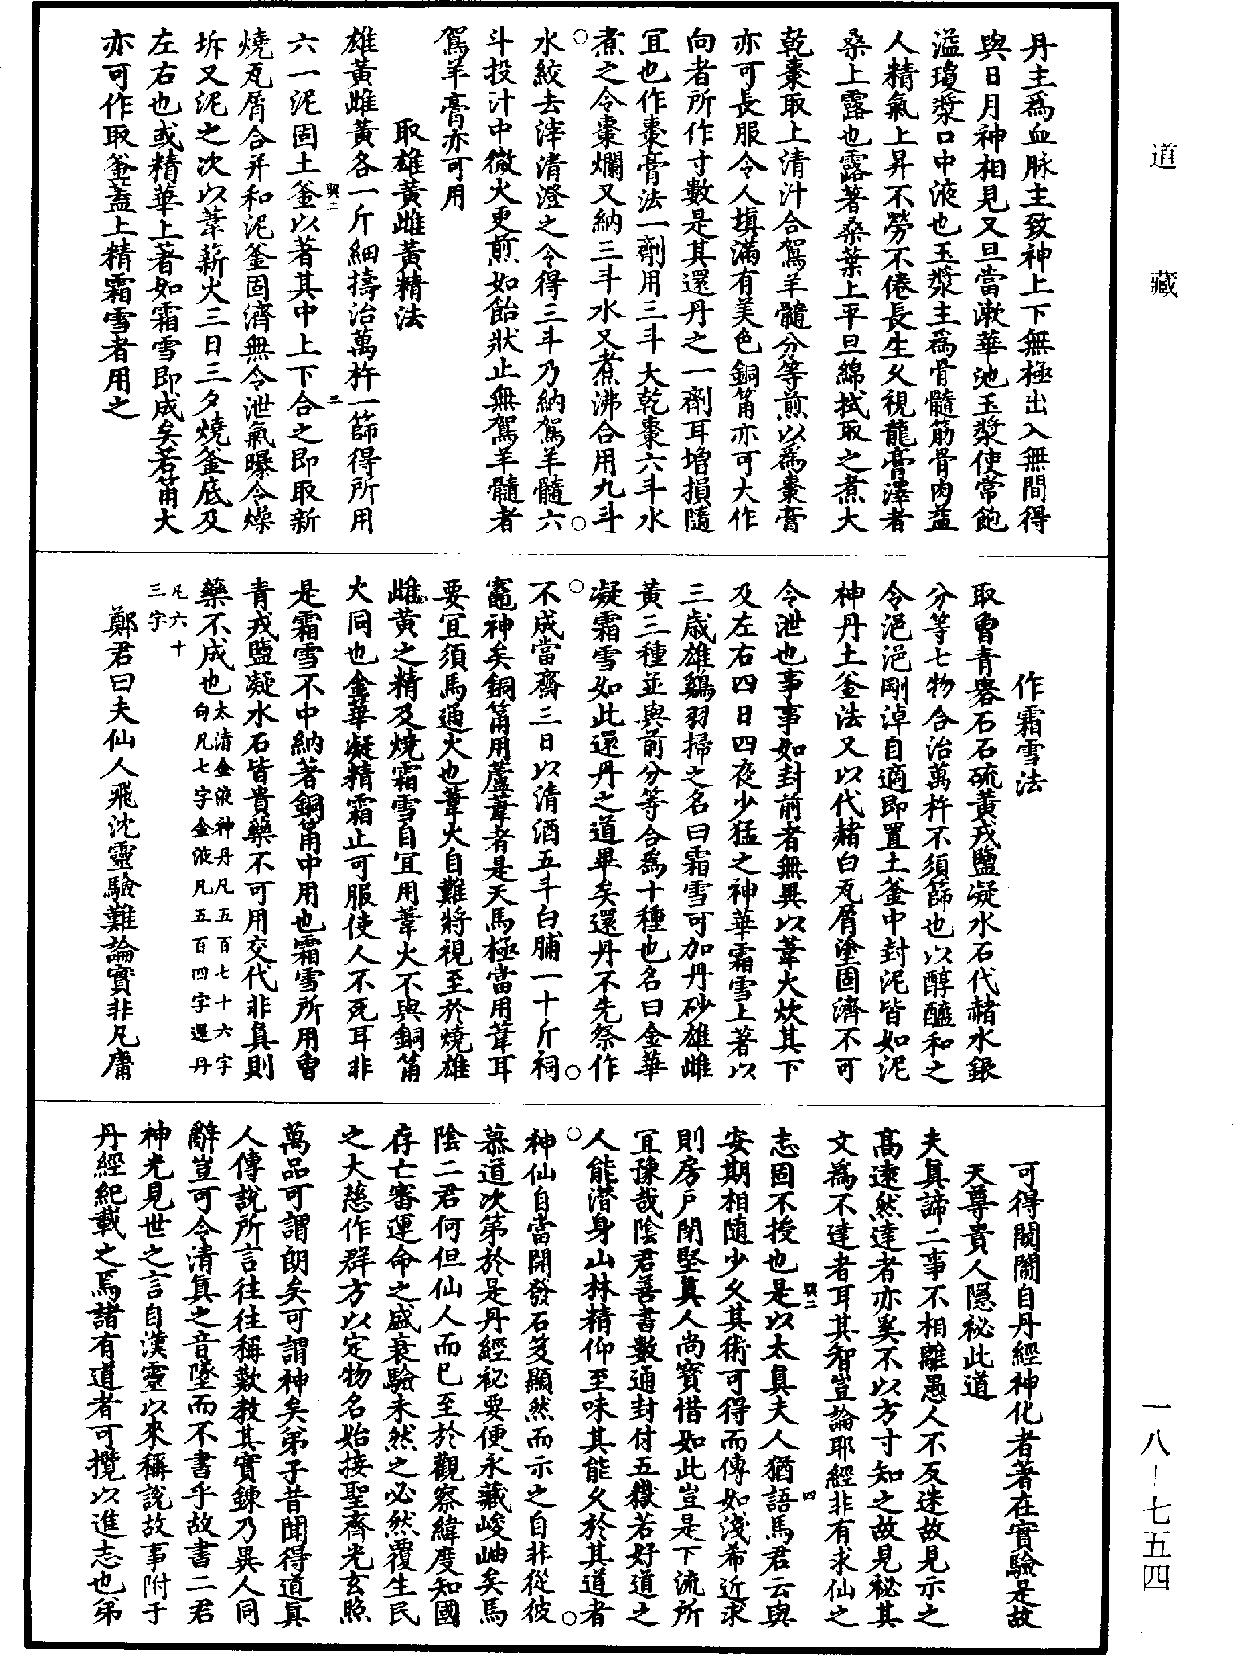 道藏
一八—七五四
丹主為血脉主致神上下無極出入無間得
與日月神相見又旦當漱華池玉漿使常飽
溢瓊漿口中液也玉漿主為骨髓筋骨肉益
人精氣上昇不勞不倦長生久視龍膏澤者
桑上露也露著桑葉上平旦綿拭取之煮大
乾棗取上清汁合駕羊髓分等煎以為棗膏
亦可長服令人填滿有美色銅筩亦可大作
向者所作寸數是其還丹之一劑耳增損隨
宜也作棗膏法一劑用三斗大乾棗六斗水
煮之令棗爛又納三斗水又煮沸合用九斗
水絞去滓清澄之令得三斗乃納駕羊髓六
斗投汁中微火更煎如飴狀止無駕羊髓者
駕羊膏亦可用
取雄黃雌黃精法
雄黃雌黃各一斤細擣治萬杵一篩得所用
六一泥固土釜以著其中上下合之即取新
燒瓦屑合并和泥釜固濟無令泄氣曝令燥
坼又泥之次以葦薪火三日三夕燒釜底及
左右也或精華上著如霜雪即成矣若筩大
亦可作取釜蓋上精霜雪者用之
作霜雪法
取曾青礜石石硫黃戎鹽凝水石代赭水銀
分等七物合治萬杵不須篩也以醇醯和之
令浥浥剛淖自適即置土釜中封泥皆如泥
神丹土釜法又以代赭白瓦屑塗固濟不可
令泄也事事如封前者無異以葦火炊其下
及左右四日四夜少猛之神華霜雪上著以
三歲雄鷄羽掃之名曰霜雪可加丹砂雄雌
黃三種並與前分等合為十種也名曰金華
凝霜雪如此還丹之道畢矣還丹不先祭作
不成當齋三日以清酒五斗白脯一十斤祠
竈神矣銅筩用蘆葦者是天馬極當用葦耳
要宜須馬通火也葦火自難將視至於燒雄
雌黃之精及燒霜雪自宜用葦火不與銅筩
大同也金華凝精霜止可服使人不死耳非
是霜雪不中納著銅筩中用也霜雪所用曾
青戎鹽凝水石皆貴藥不可用交代非真則
藥不成也太清金液神丹凡五百七十六字
白凡七字金液凡五百四字還丹
凡六十
三字
鄭君曰夫仙人飛沈靈驗難論實非凡庸
可得闚關自丹經神化者著在實驗是故
天尊貴人隱祕此道
夫真諦二事不相離愚人不反迷故見示之
高遠然達者亦奚不以方寸知之故見祕其
文為不達者耳其智豈論耶經非有求仙之
志固不授也是以太真夫人猶語馬君云與
安期相隨少久其術可得而傳如淺希近求
則房戶閉堅真人尚寶惜如此豈是下流所
宜豫哉陰君善書數通封付五嶽若好道之
人能潛身山林精仰至味其能久於其道者
神仙自當開發石笈顯然而示之自非從彼
慕道次第於是丹經祕要便永藏峻岫矣馬
陰二君何但仙人而已至於觀察緯度知國
存亡審運命之盛衰驗未然之必然覆生民
之大慈作群方以定物名始接聖齊光玄照
萬品可謂朗矣可謂神矣弟子昔聞得道真
人傳說所言往往稱歎教其實鍊乃異人同
辭豈可令清真之音墜而不書乎故書二君
神光見世之言自漢靈以來稱說故事附于
丹經紀載之焉諸有道者可攬以進志也弟